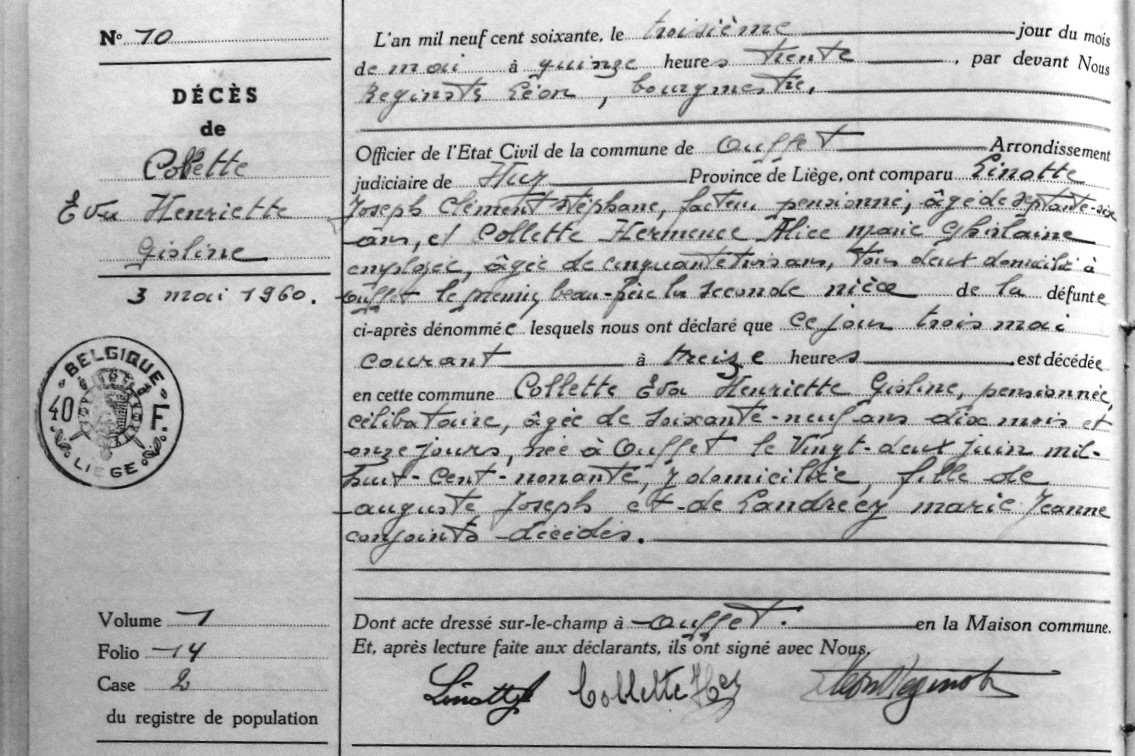 N° 10
DÉCÈS
de
Collette
Èva Henriette
Gisline
3 mai 1960.
BELGIQUE
40 F.
LIEGE
Volume 1
Folio 14
Case 2
du registre de population
L'an mil neuf cent soixante, le troisième jour du mois
de mai à quinze heures trente, par devant Nous
Reginster Léon, bourgmestre,
Officier de l'Etat Civil de la commune de Ouffet Arrondissement
judiciaire de Huy Province de Liège, ont comparu Linotte
Joseph Clément Stéphane, facteur pensionné, âgé de septante-six
ans, et Collette Hermence Alice Marie Ghislaine
employée, âgée de cinquante trois ans, tous deux domicilié à
Ouffet le premier, beau-père la seconde nièce de la défunte
ci-après dénommée lesquels nous ont déclaré que ce jour trois mai
courant à treize heures est décédée
en cette commune Collette Èva Henriette Gisline, pensionnée,
célibataire, âgée de soixante-neuf ans dix mois et
onze jours, née à Ouffet le vingt-deux juin mil-
huit-cent-nonante, y domiciliée, fille de
Auguste Joseph et de Landrecy Marie Jeanne
conjoints décédés.
Dont acte dressé sur-le-champ à Ouffet. en la Maison commune.
Et, après lecture faite aux déclarants, ils ont signé avec Nous,
Linotte Collette